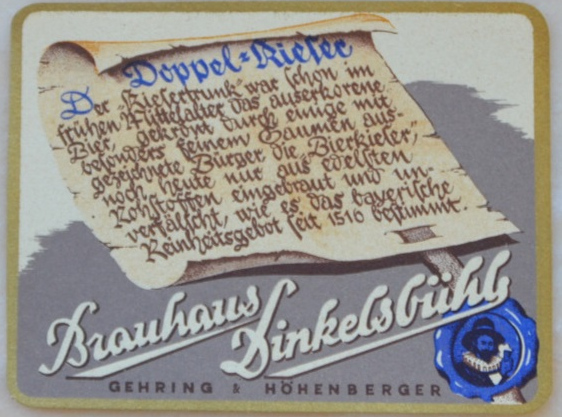 Doppel-Kieser
Der „Kiesertrunk“ war schon im
frühen Mittelalter das auserkorene
Bier, gekrönt durch einige mit
besonders feinem Gaumen aus-
gezeichnete Bürger die Bierkieser,
noch heute nur aus edelsten
Rohstoffen eingebraut und un-
verfälscht, wie es das bayerische
Reinheitsgebot seit 1516 bestimmt.
Brauhaus Dinkelsbühl
GEHRING & HÖHENBERGER